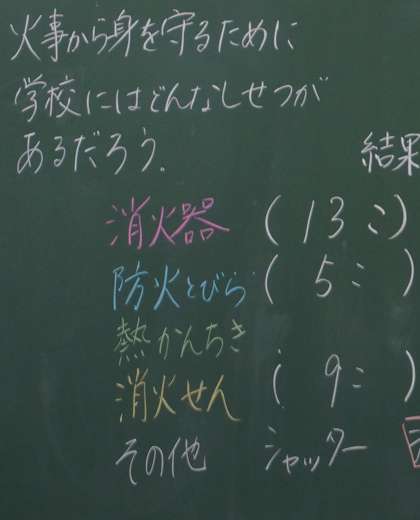 火事から身を守るために
学校にはどんなしせつが
あるだろう。
結果
消火器 (13こ)
防火とびら (5こ)
熱かんちき
消火せん (9こ)
その他 シャッター